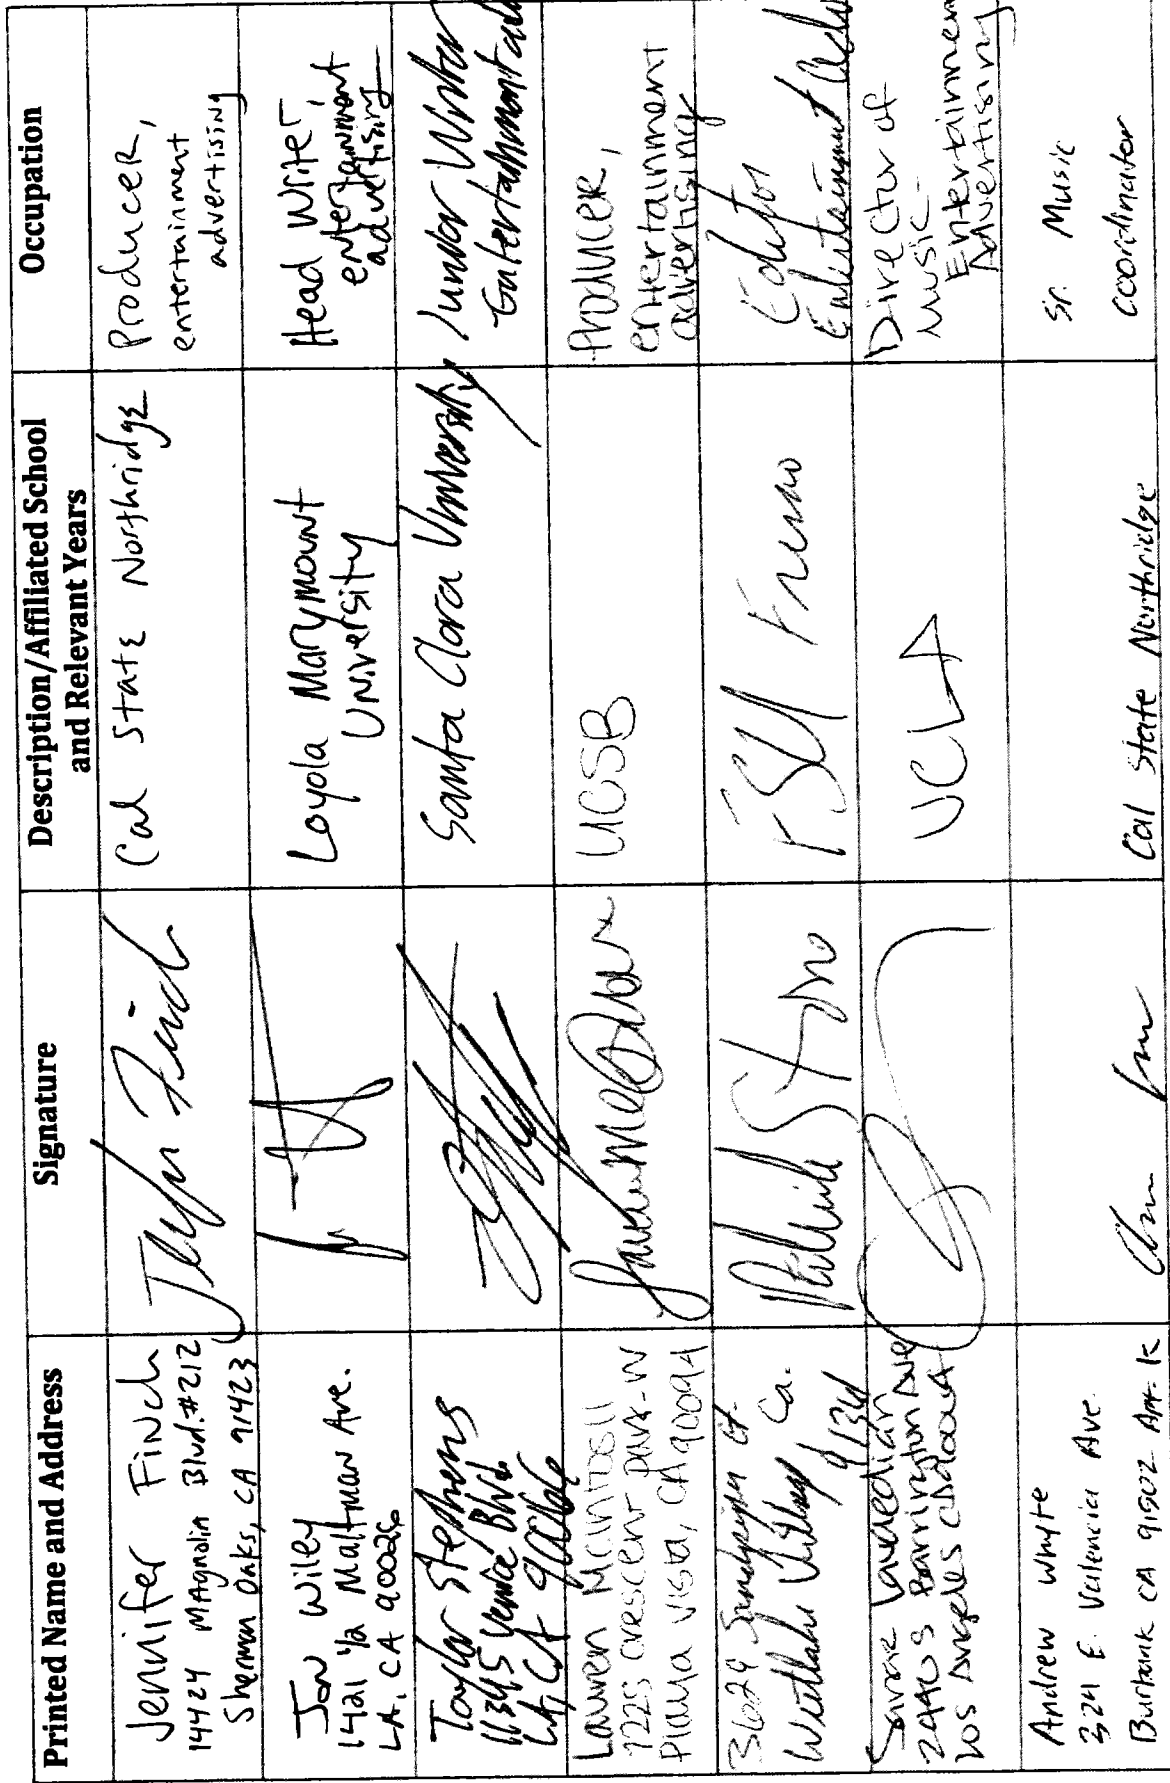 Printed Name and Address
Signature
Description/Affiliated School
and Relevant Years
Occupation
Jennifer Finch
14424 Magnolia Blvd. #212
Sherman Oaks, CA 91423
Cal State Northridge
Producer,
entertainment
advertising
Jon Wiley
1421 1/2 Maltman Ave.
LA, CA 90026
Loyola Marymount
University
Head Writer,
entertainment
advertising
Taylor Stephens
11345 Venice Blvd.
LA, CA 90066
Santa Clara University
Junior Writer
Entertainment
Lauren McIntosh
7225 crescent park W
Playa Vista, CA 90094
UCSB
Producer,
entertainment
advertising
3629
Ct.
Westlake Village Ca.
FSU Fresno
Editor
Entertainment
Los Angeles
UCLA
Director of
Music -
Entertainment
Advertising
Andrew Whyte
324 E. Valencia Ave
Burbank CA 91502 Apt. K
Cal State Northridge
Sr. Music
Coordinator